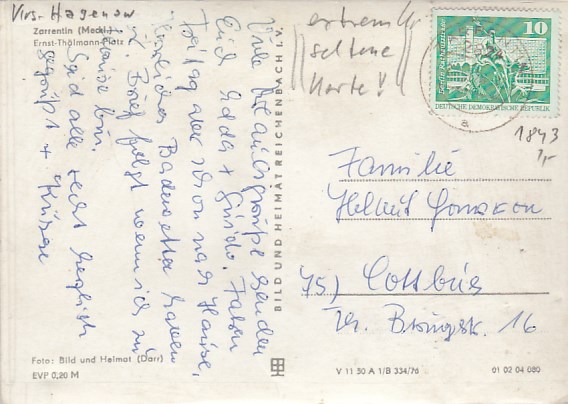 Krs. Hagenow
Zarrentin (Meckl.)
Ernst-Thälmann-Platz
Viele Urlaubsgrüße senden
Euch Gerda + Guido. Fahren
Freitag schon nach Hause,
Badewetter haben
Brief folgt wenn ich zu
Hause bin.
Seid alle recht herzlich
gegrüßt + Küsse
Foto: Bild und Heimat (Darr)
EVP 0,20 M
BILD UND HEIMAT REICHENBACH I. V.
extrem
seltene
Karte!
10
DEUTSCHE DEMOKRATISCHE REPUBLIK
a
1843
Familie
Helmut
75.) Cottbus
16
V 11 30 A 1/B 334/76
01 02 04 080